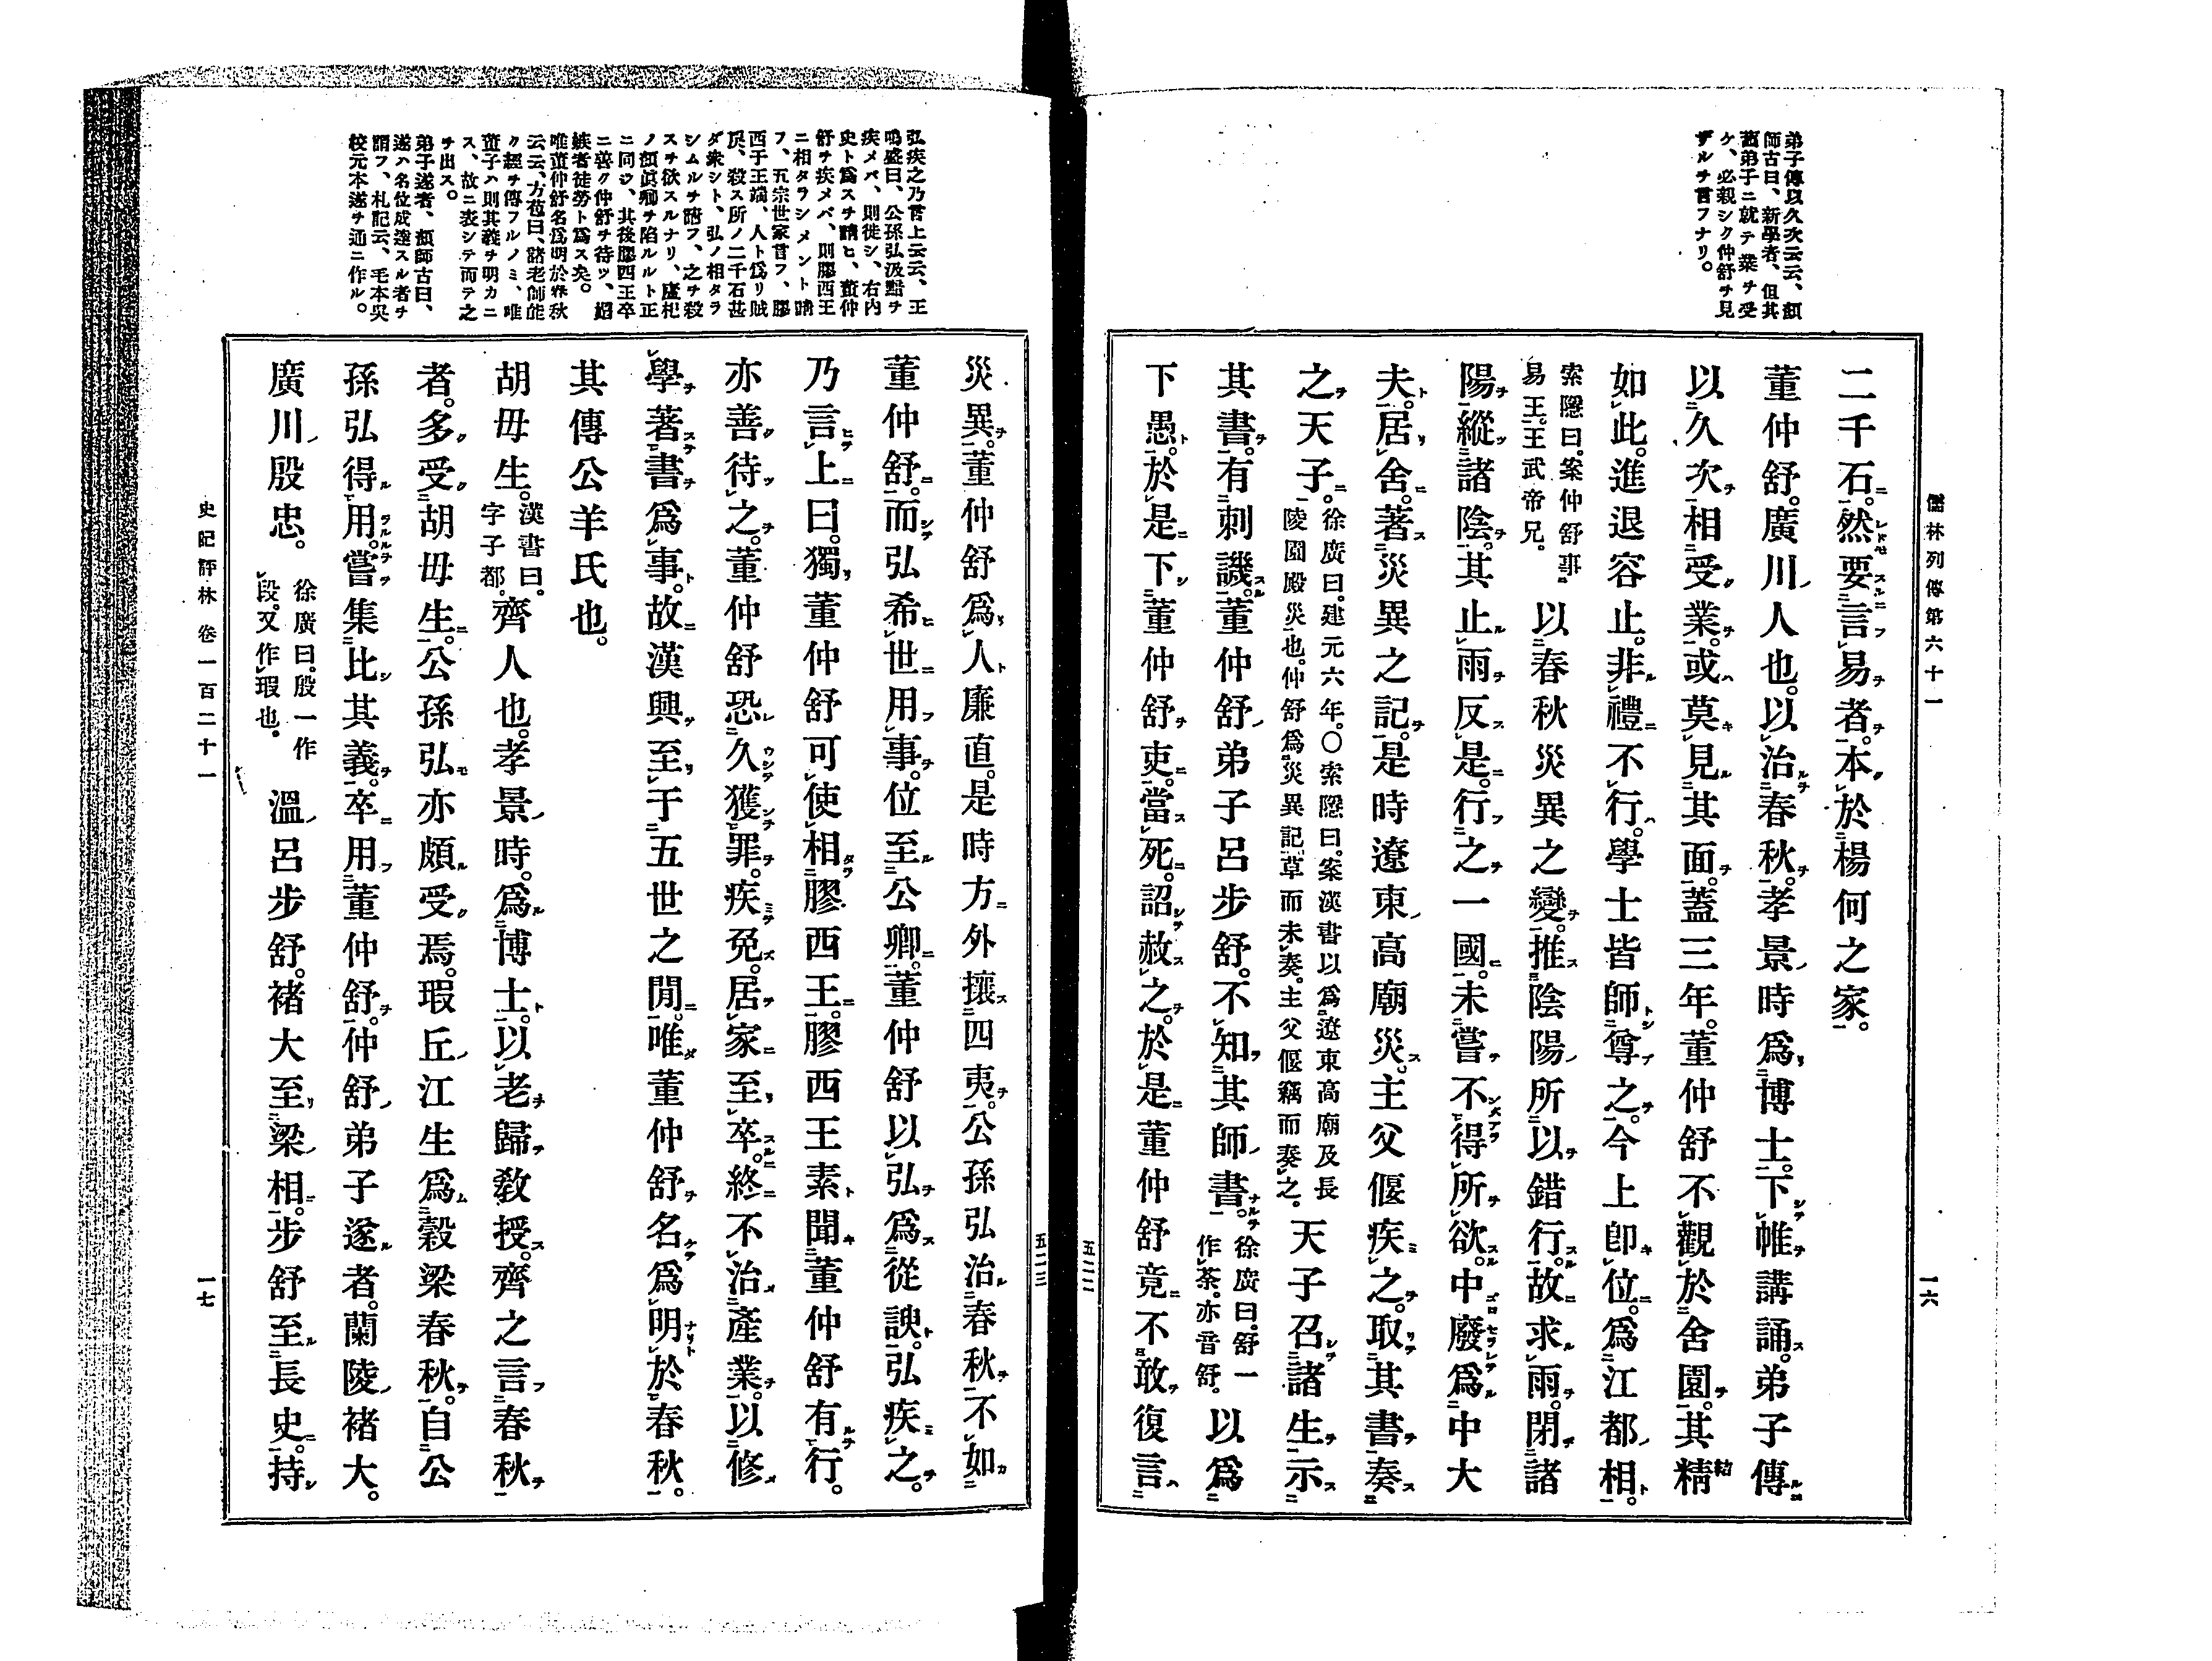 儒林列傳第六十一
一六
弟子傳以久次云云、顏
師古曰、新學者、但其
舊弟子ニ就テ業チ受
ケ、必親シク仲舒チ見
ザルチ言フナリ。
二千石。然要言易者。本於楊何之家。
董仲舒。廣川人也。以治春秋。孝景時爲博士。下帷講誦。弟子傳
以久次相受業。或莫見其面。蓋三年。董仲舒不觀於舍園。其精
如此。進退容止。非禮不行。學士皆師尊之。今上卽位。爲江都相。
索隱曰。案仲舒事
易王。王武帝兄。
以春秋災異之變。推陰陽所以錯行。故求雨。閉諸
陽。縱諸陰。其止雨反是。行之一國。未嘗不得所欲。中廢爲中大
夫。居舍。著災異之記。是時遼東高廟災。主父偃疾之。取其書奏
之天子。
徐廣曰。建元六年。〇索隱曰。案漢書以爲遼東高廟及長
陵園殿災也。仲舒爲災異記草而未奏。主父偃竊而奏之。
天子召諸生示
其書。有刺譏。董仲舒弟子呂步舒。不知其師書。
徐廣曰。舒一
作荼。亦音舒。
以爲
下愚。於是下董仲舒吏。當死。詔赦之。於是董仲舒竟不敢復言
五二二
五二三
弘疾之乃言上云云、王
鳴盛曰、公孫弘汲黯チ
疾メバ、則徙シ、右內
史ト爲スチ請ヒ、董仲
舒チ疾メバ、則膠西王
ニ相タラシメント請
フ、五宗世家言フ、膠
西于王端、人ト爲リ賊
戾、殺ス所ノ二千石甚
ダ衆シト、弘ノ相タラ
シムルチ請フ、之チ殺
スチ欲スルナリ、盧杞
ノ顏眞卿チ陷ルルト正
ニ同ジ、其後膠西王卒
ニ善ク仲舒チ待ツ、
嫉者徒勞ト爲ス矣。
唯董仲舒名爲明於春秋
云云、方苞曰、諸老師能
ク經チ傳フルノミ、唯
董子ハ則其義チ明カニ
ス、故ニ表シテ而テ之
チ出ス。
弟子遂者、顏師古曰、
遂ハ名位成達スル者チ
謂フ、札記云、毛本吳
校元本遂チ通ニ作ル。
災異。董仲舒爲人廉直。是時方外攘四夷。公孫弘治春秋。不如
董仲舒。而弘希世用事。位至公卿。董仲舒以弘爲從諛。弘疾之。
乃言上曰。獨董仲舒可使相膠西王。膠西王素聞董仲舒有行。
亦善待之。董仲舒恐久獲罪。疾免。居家至卒。終不治產業。以修
學著書爲事。故漢興至于五世之閒。唯董仲舒名爲明於春秋。
其傳公羊氏也。
胡毋生。
漢書曰。
字子都。
齊人也。孝景時。爲博士。以老歸敎授。齊之言春秋
者。多受胡毋生。公孫弘亦頗受焉。瑕丘江生爲穀梁春秋。自公
孫弘得用。嘗集比其義。卒用董仲舒。仲舒弟子遂者。蘭陵褚大。
廣川殷忠。
徐廣曰。殷一作
段。又作瑕也。
溫呂步舒。褚大至梁相。步舒至長史。持
史記評林 卷一百二十一
一七